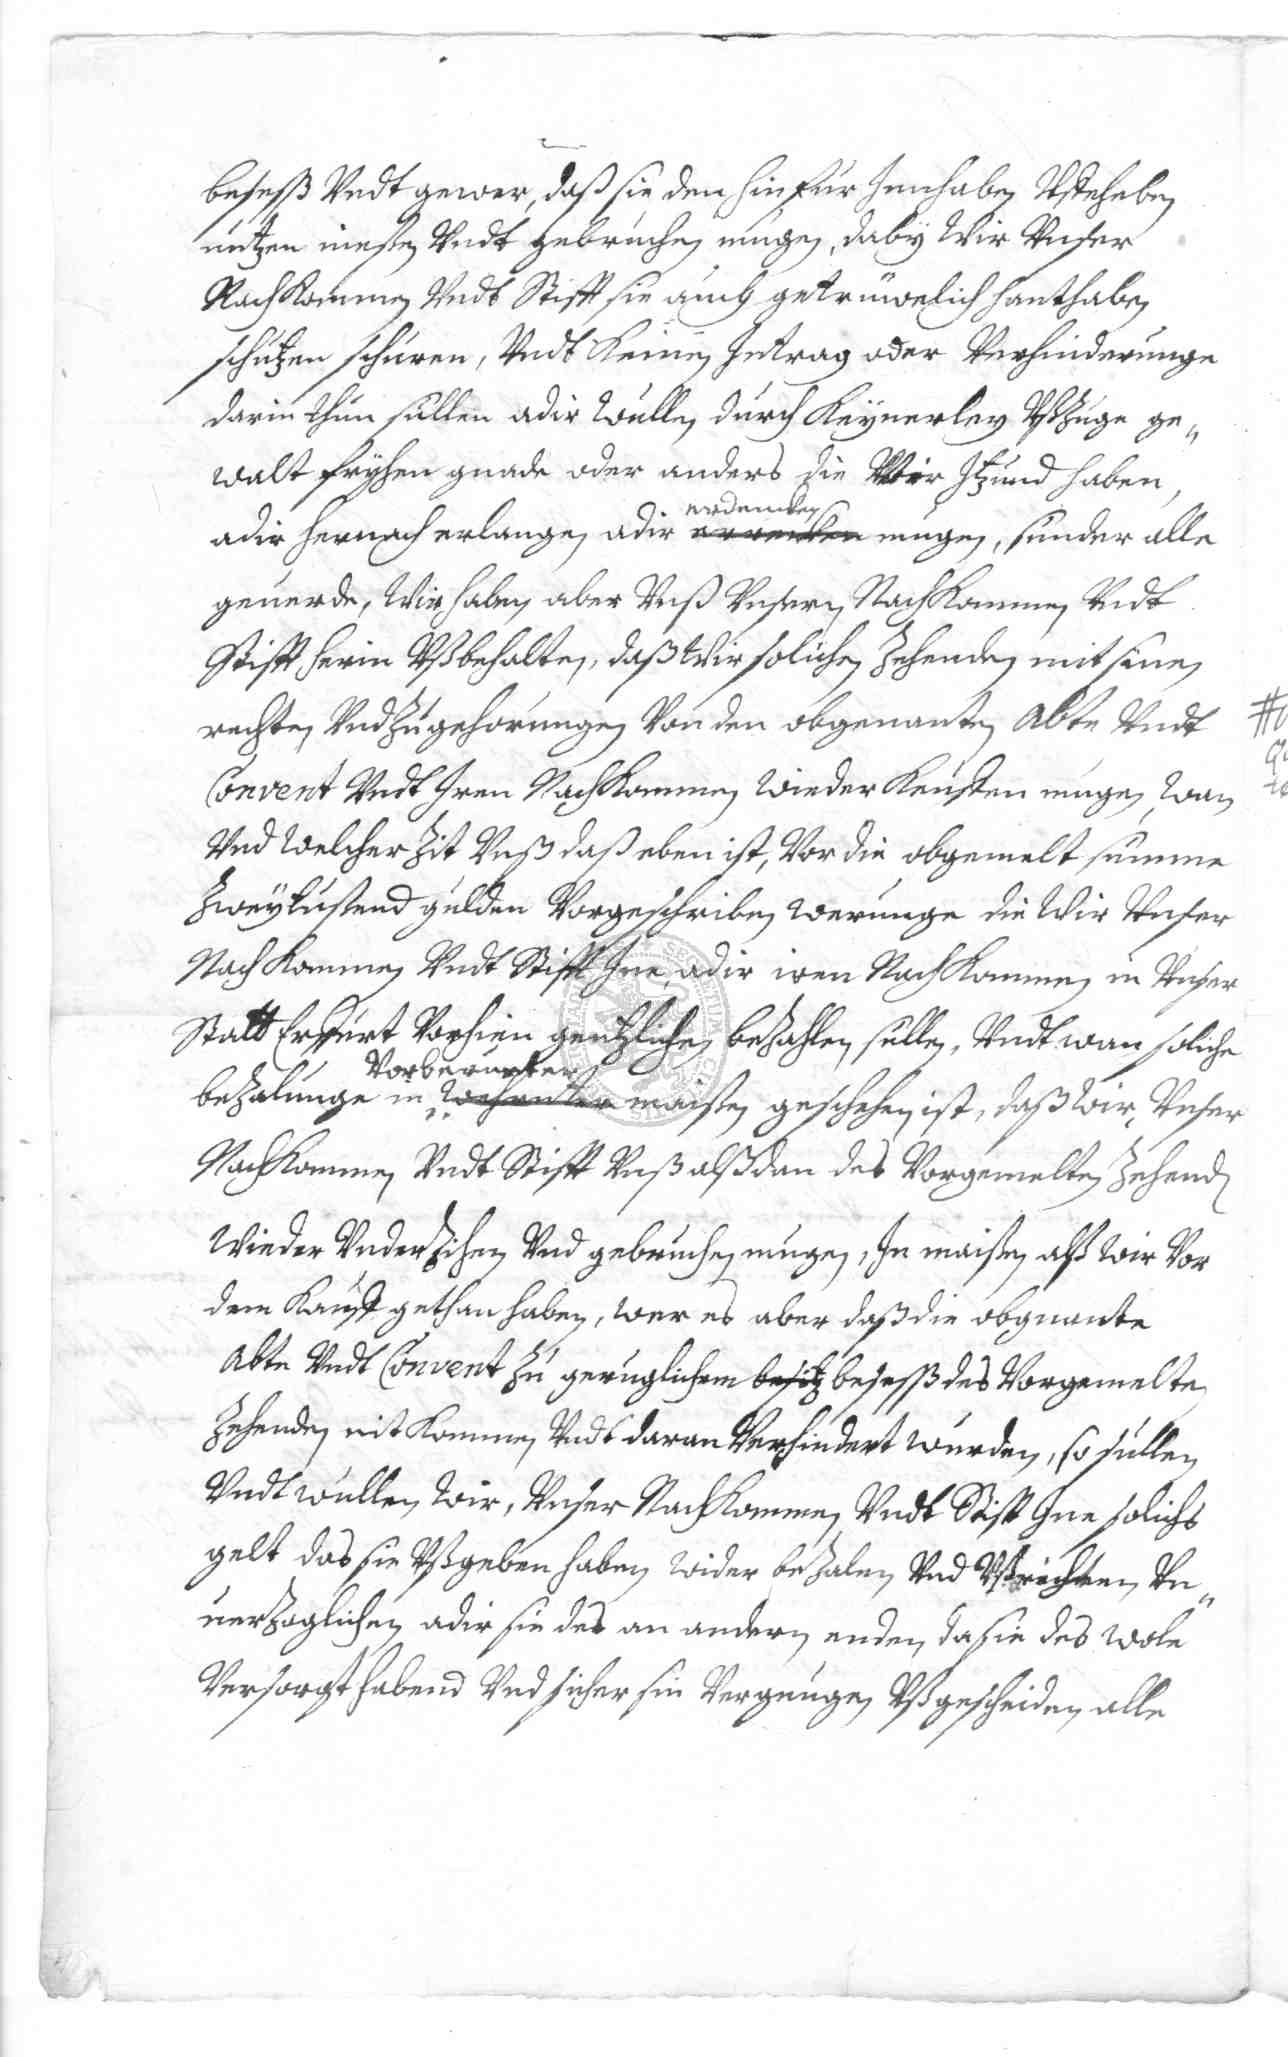 beseß Vndt gewer, daß sie den hinfur Innhaben Vffheben
nutzen niessen Vndt gebruchen mugen, daby Wir Vnser
Nachkommen Vndt Stifft sie auch getruwelich hanthaben
schutzen schuren, Vndt keinen Intrag oder Verhinderunge
darin thun sullen adir wullen durch keynerley Vßzuge ge„
walt fryhen gnade oder anders die Wir Itzund haben,
adir hernach erlangen adir erdencken mugen, sunder alle
geuerde, Wir haben aber Vnß Vnsern Nachkommen Vndt
Stifft herin Vßbehalten, daß Wir solichen Zehenden mit sinen
rechten Vnd Zugehorungen Von den obgenanten Abte Vndt
Convent Vndt Iren Nachkommen wieder keuffen mugen wan
Vnd welcher Zit Vnß daß eben ist, Vor die obgemelt summe
Zweytusend gulden Vorgeschriben werunge die Wir Vnser
Nachkommen Vndt Stifft Ine adir iren Nachkommen in Vnser
Statt Erffurt Vorhien gentzlichen bezahlen sullen, Vndt wan soliche
Vorberurter
bezalunge in maissen geschehen ist, daß Wir, Vnser
Nachkommen Vndt Stifft Vnß alßdan des Vorgemelten Zehend
Wieder Vnderzihen Vnd gebruchen mugen, In maissen alß Wir Vor
dem Kauff gethan haben, wer es aber daß die obgnante
Abte Vndt Convent zu geruglichem besitz beseß des Vorgemelten
Zehenden nit kommen Vndt daran Verhindert wurden, so sullen
Vndt wullen Wir, Vnser Nachkommen Vndt Stifft Ine solichs
gelt das sie Vßgeben haben wider bezalen Vnd Vßrichten Vn„
uerzoglichen adir sie des an andern enden da sie des wole
Versorgt habend Vnd sicher sin Vergnugen Vßgescheiden alle